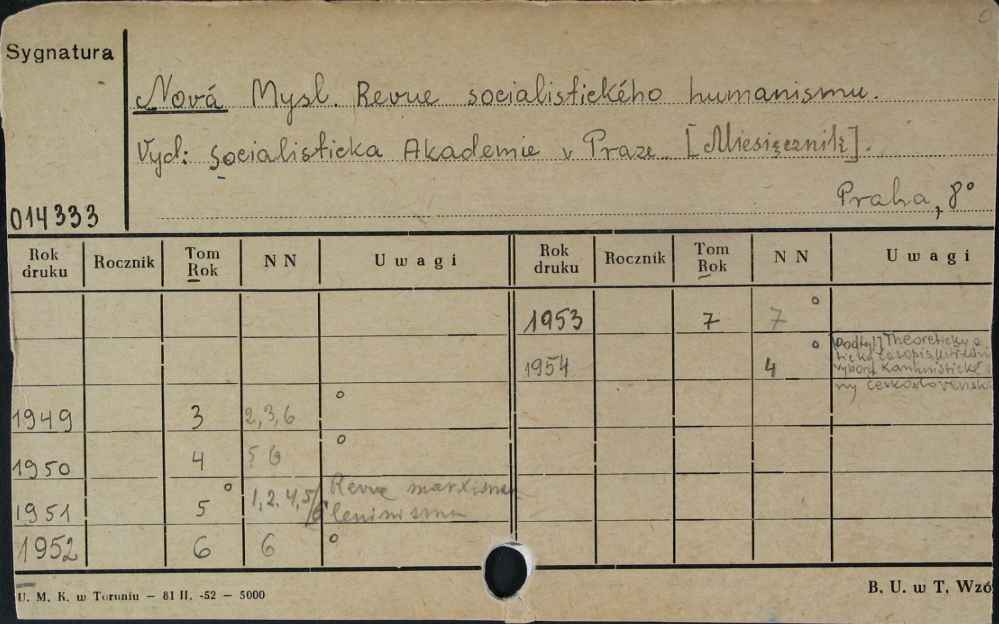 Sygnatura
Nová Mysl. Revue socialistického humanismu.
Vyd: Socialisticka Akademie v Praze. [Miesięcznik].
Praha, 8°
014333
Rok druku Rocznik Tom Rok NN Uwagi Rok druku Rocznik Tom Rok NN Uwagi
1953 7 7 °
1954 4 ° Podtyt] Theoreticky a
ticky časopis
vyboru
ny
1949 3 2,3,6 °
1950 4 5 6 °
1951 5 ° 1,2,4,5/6 Revue marxisma
leninismu
1952 6 6 °
U. M. K. w Toruniu — 81 II. -52 — 5000
B. U. w T. Wzó